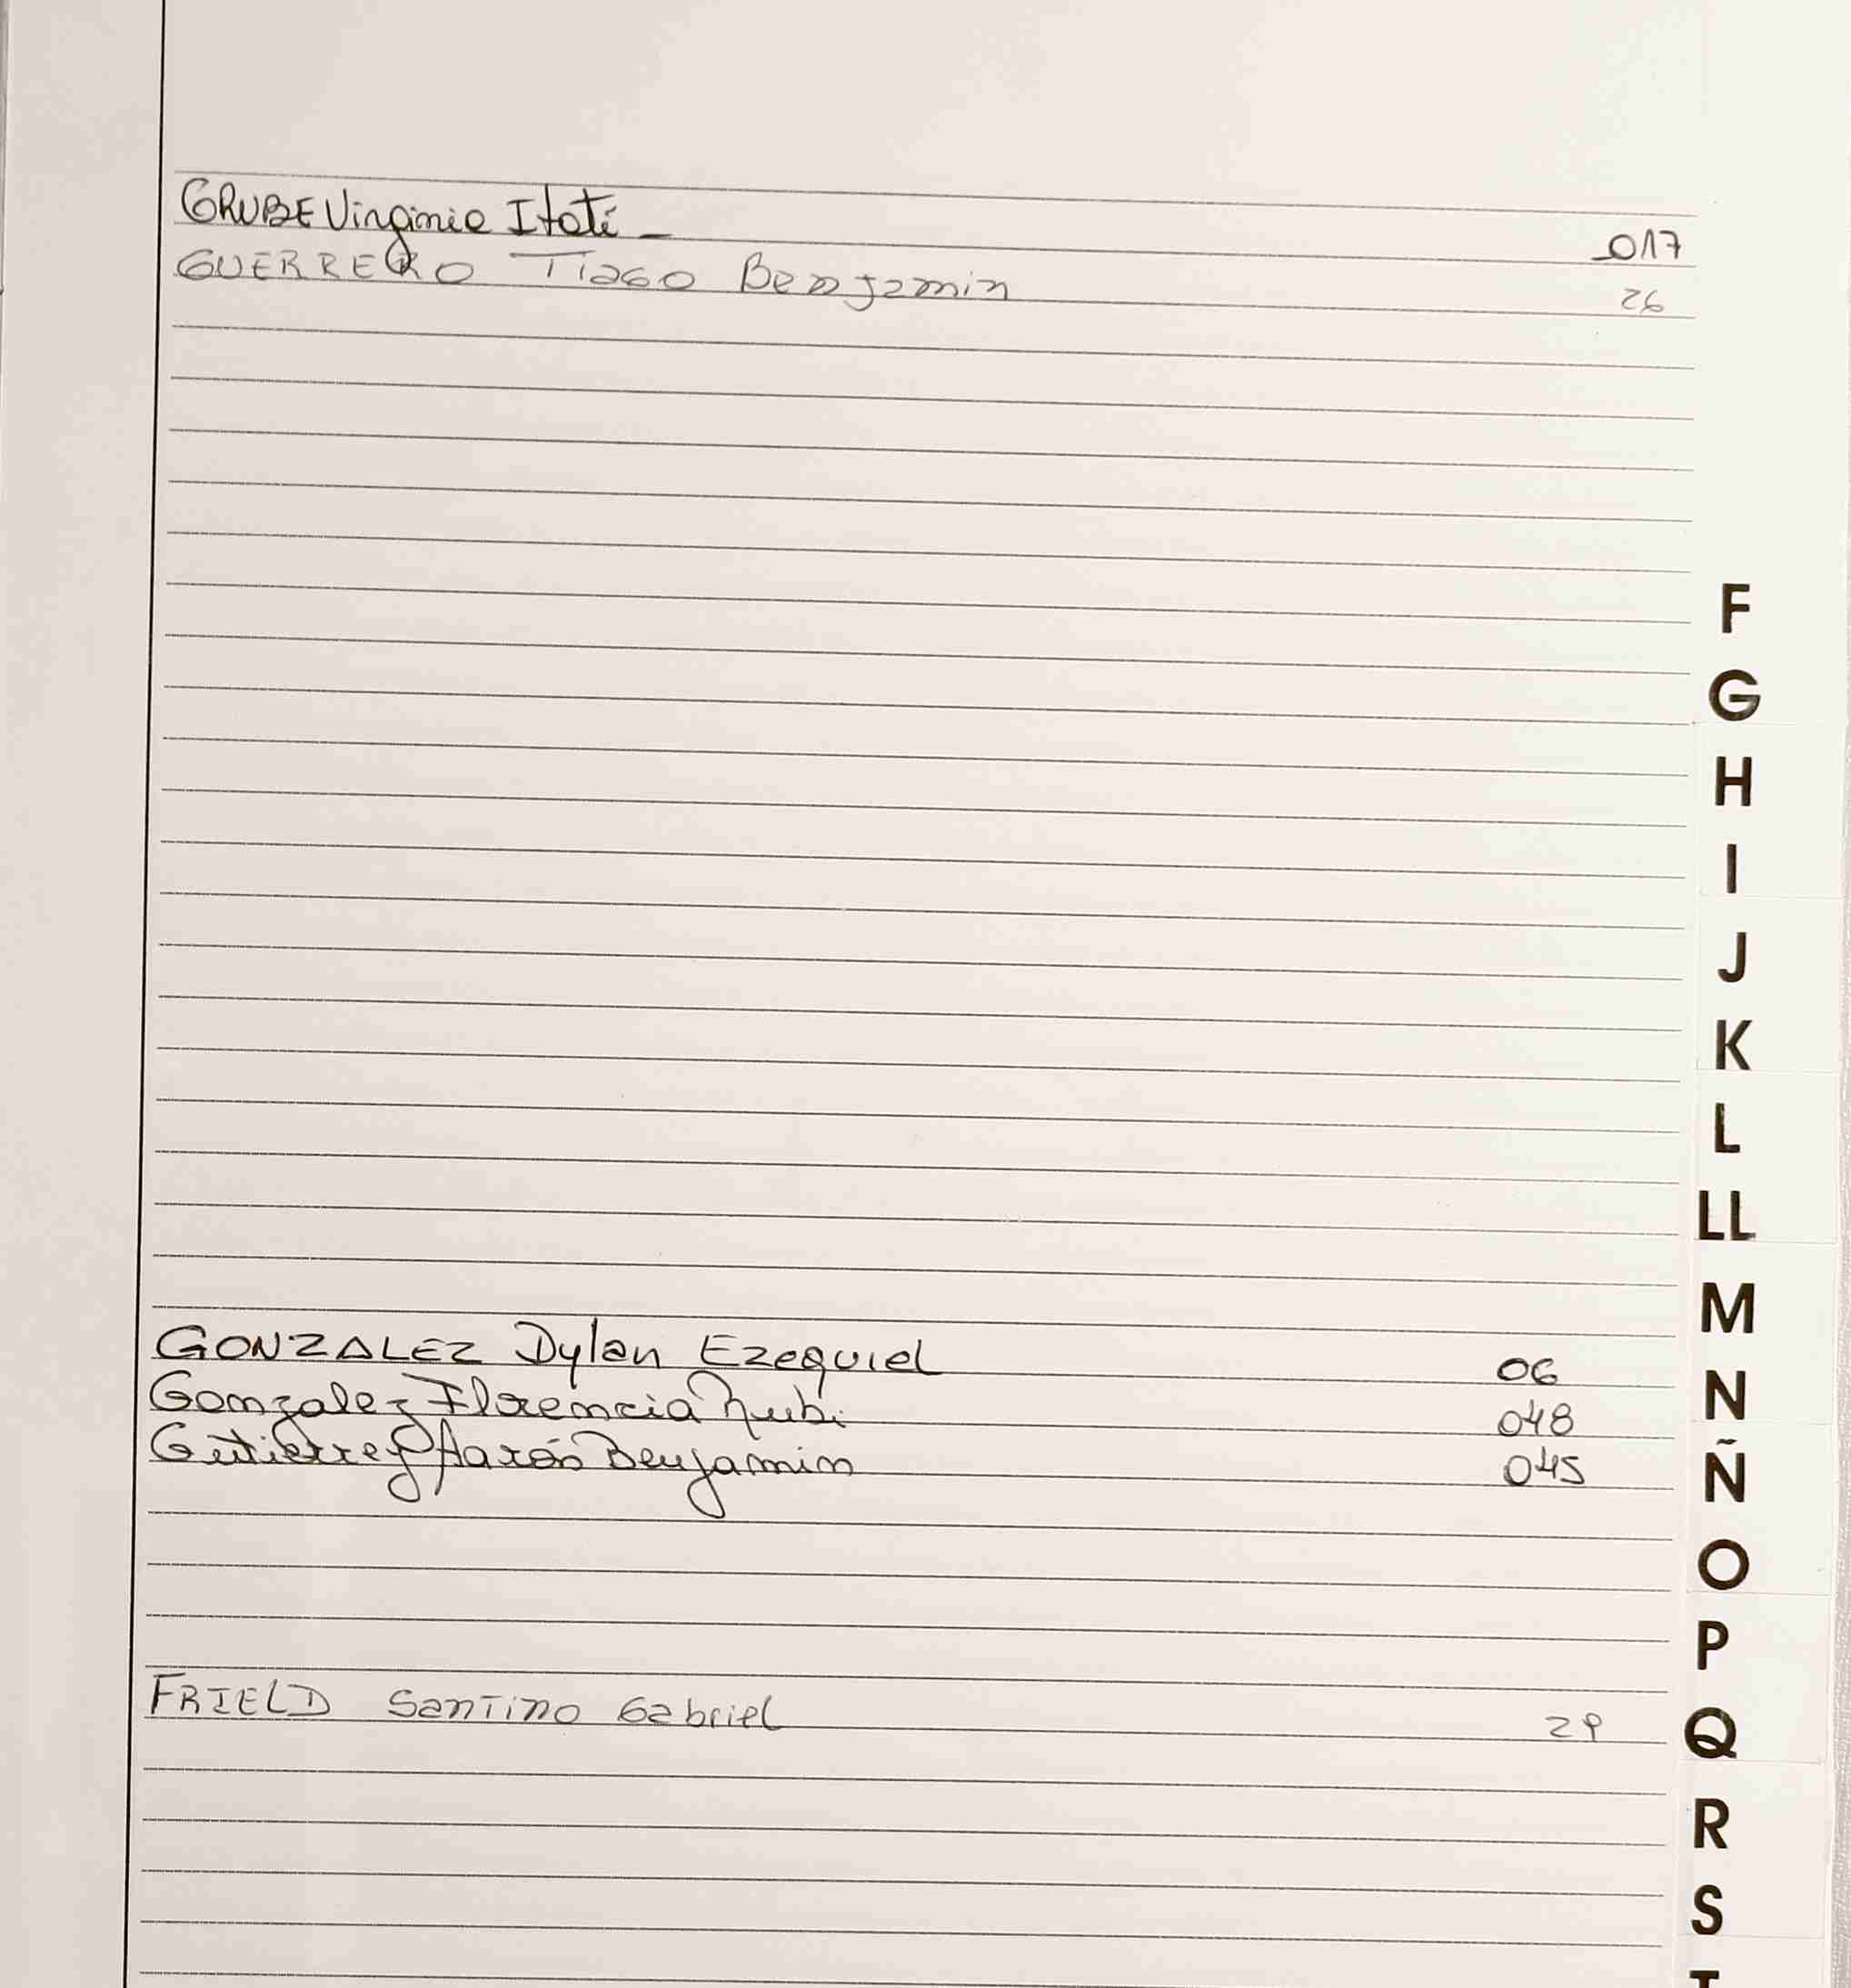 GRUBE Virginia Itatí - 017
GUERRERO Tiago Benjamin 26
F
G
H
I
J
K
L
LL
M
GONZALEZ Dylan Ezequiel 06
N
Gonzalez Florencia Rubi 048
Gutierrez Aarón Benjamin 045
Ñ
O
P
FRIELD Santino Gabriel 29
Q
R
S